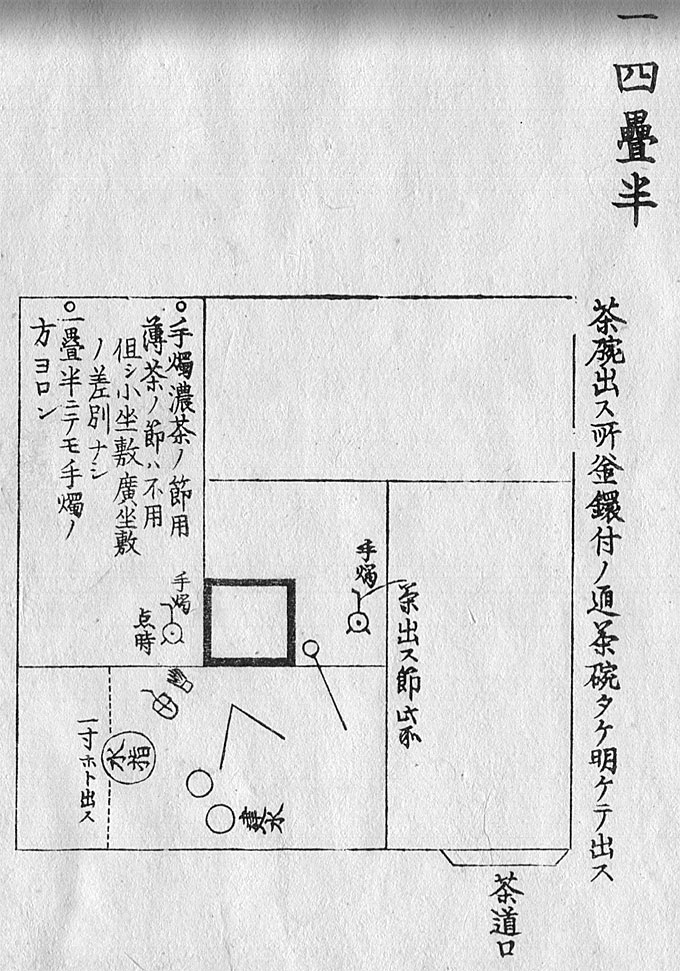 一 四疊半
茶碗出ス所釜鐶付ノ通茶碗タケ明ケテ出ス
○手燭濃茶ノ節用
薄茶ノ節ハ不用
但シ小坐敷廣坐敷
ノ差別ナシ
○一疊半ニテモ手燭ノ
方ヨロシ
手燭
茶出ス節此所
手燭
点時
水指
一寸ホト出ス
建水
茶道口